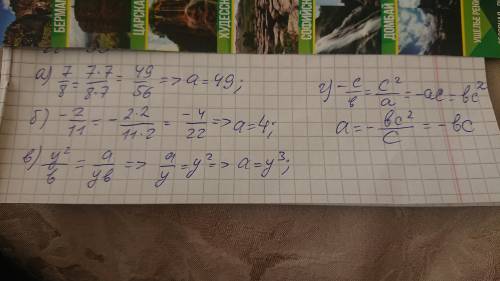 БЕРИАН
ЦАРСКА
ХУДЕСС
СОФИЙСК
ДОМБАЙ
УЩЕЛЬЕ РЕК
а) 7/8 = 7·7/8·7 = 49/56 => a = 49;
б) -2/11 = - 2·2/11·2 = -4/22 => a = 4;
в) y²/b = a/yb => a/y = y² => a = y³;
г) -c/b = c²/a = -ac = bc²
a = - bc²/c = -bc